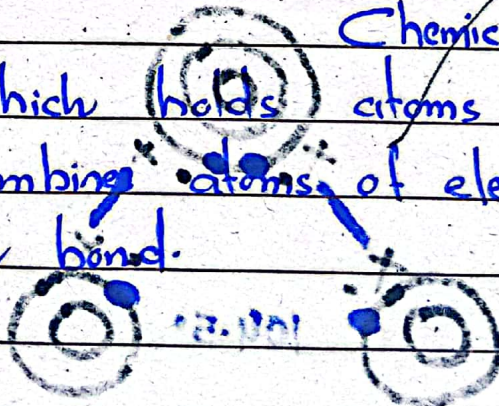 Chemic
hich holds atoms
mbines atoms of ele
bond.